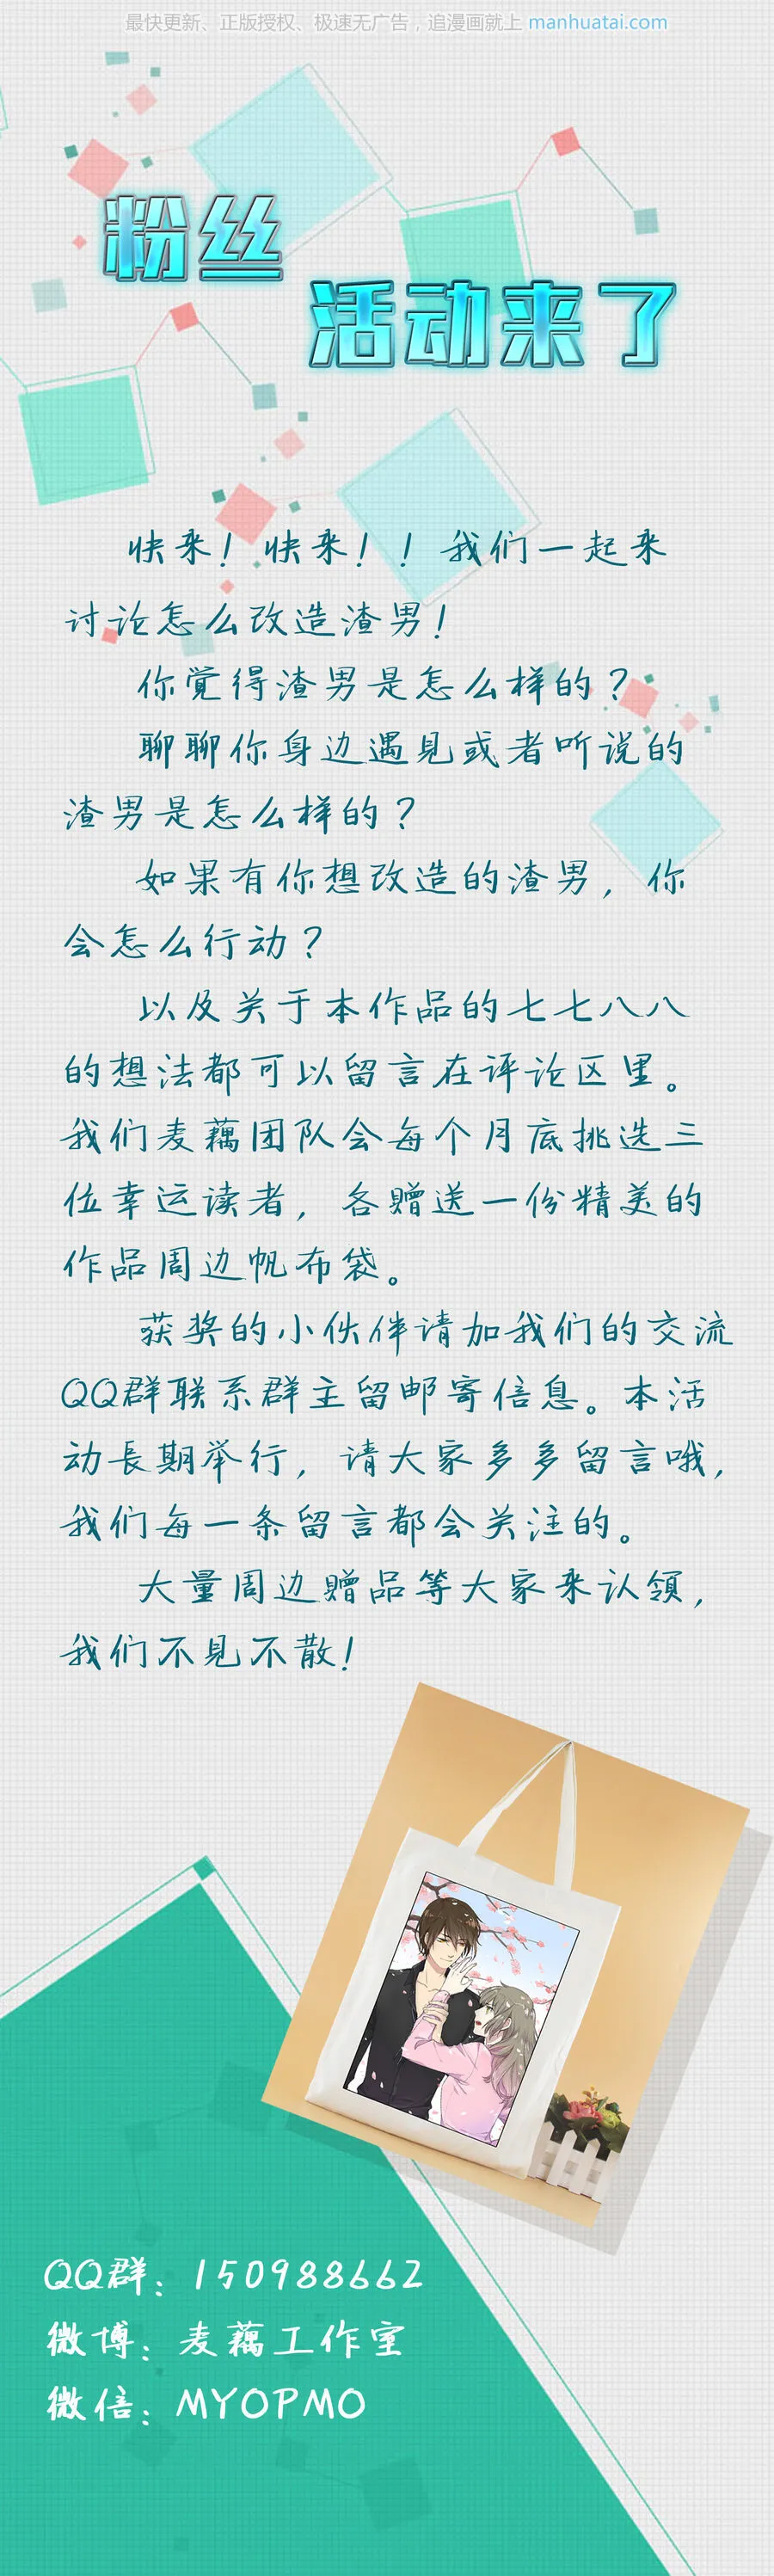 最快更新、正版授权、极速无广告，追漫画就上 manhuatai.com
粉丝
活动来了
快来！快来！！我们一起来
讨论怎么改造渣男！
你觉得渣男是怎么样的？
聊聊你身边遇见或者听说的
渣男是怎么样的？
如果有你想改造的渣男，你
会怎么行动？
以及关于本作品的七七八八
的想法都可以留言在评论区里。
我们麦藕团队会每个月底挑选三
位幸运读者，各赠送一份精美的
作品周边帆布袋。
获奖的小伙伴请加我们的交流
QQ群联系群主留邮寄信息。本活
动長期举行，请大家多多留言哦，
我们每一条留言都会关注的。
大量周边赠品等大家来认領，
我们不见不散！
QQ群：150988662
微博：麦藕工作室
微信：MYOPMO